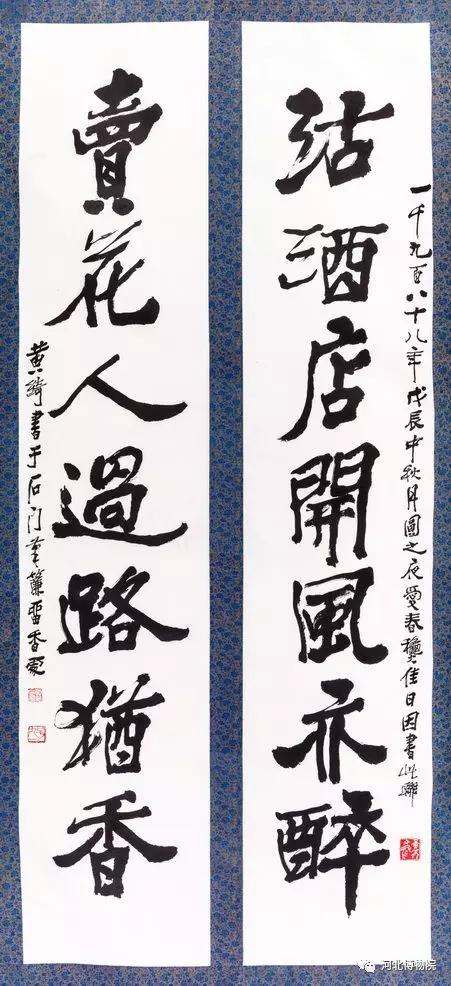 一千九百八十八年戊辰中秋月圓之辰愛春穫佳日因書此聯
沽酒店開風亦醉
賣花人過路猶香
黄綺書于石门
河北博物院